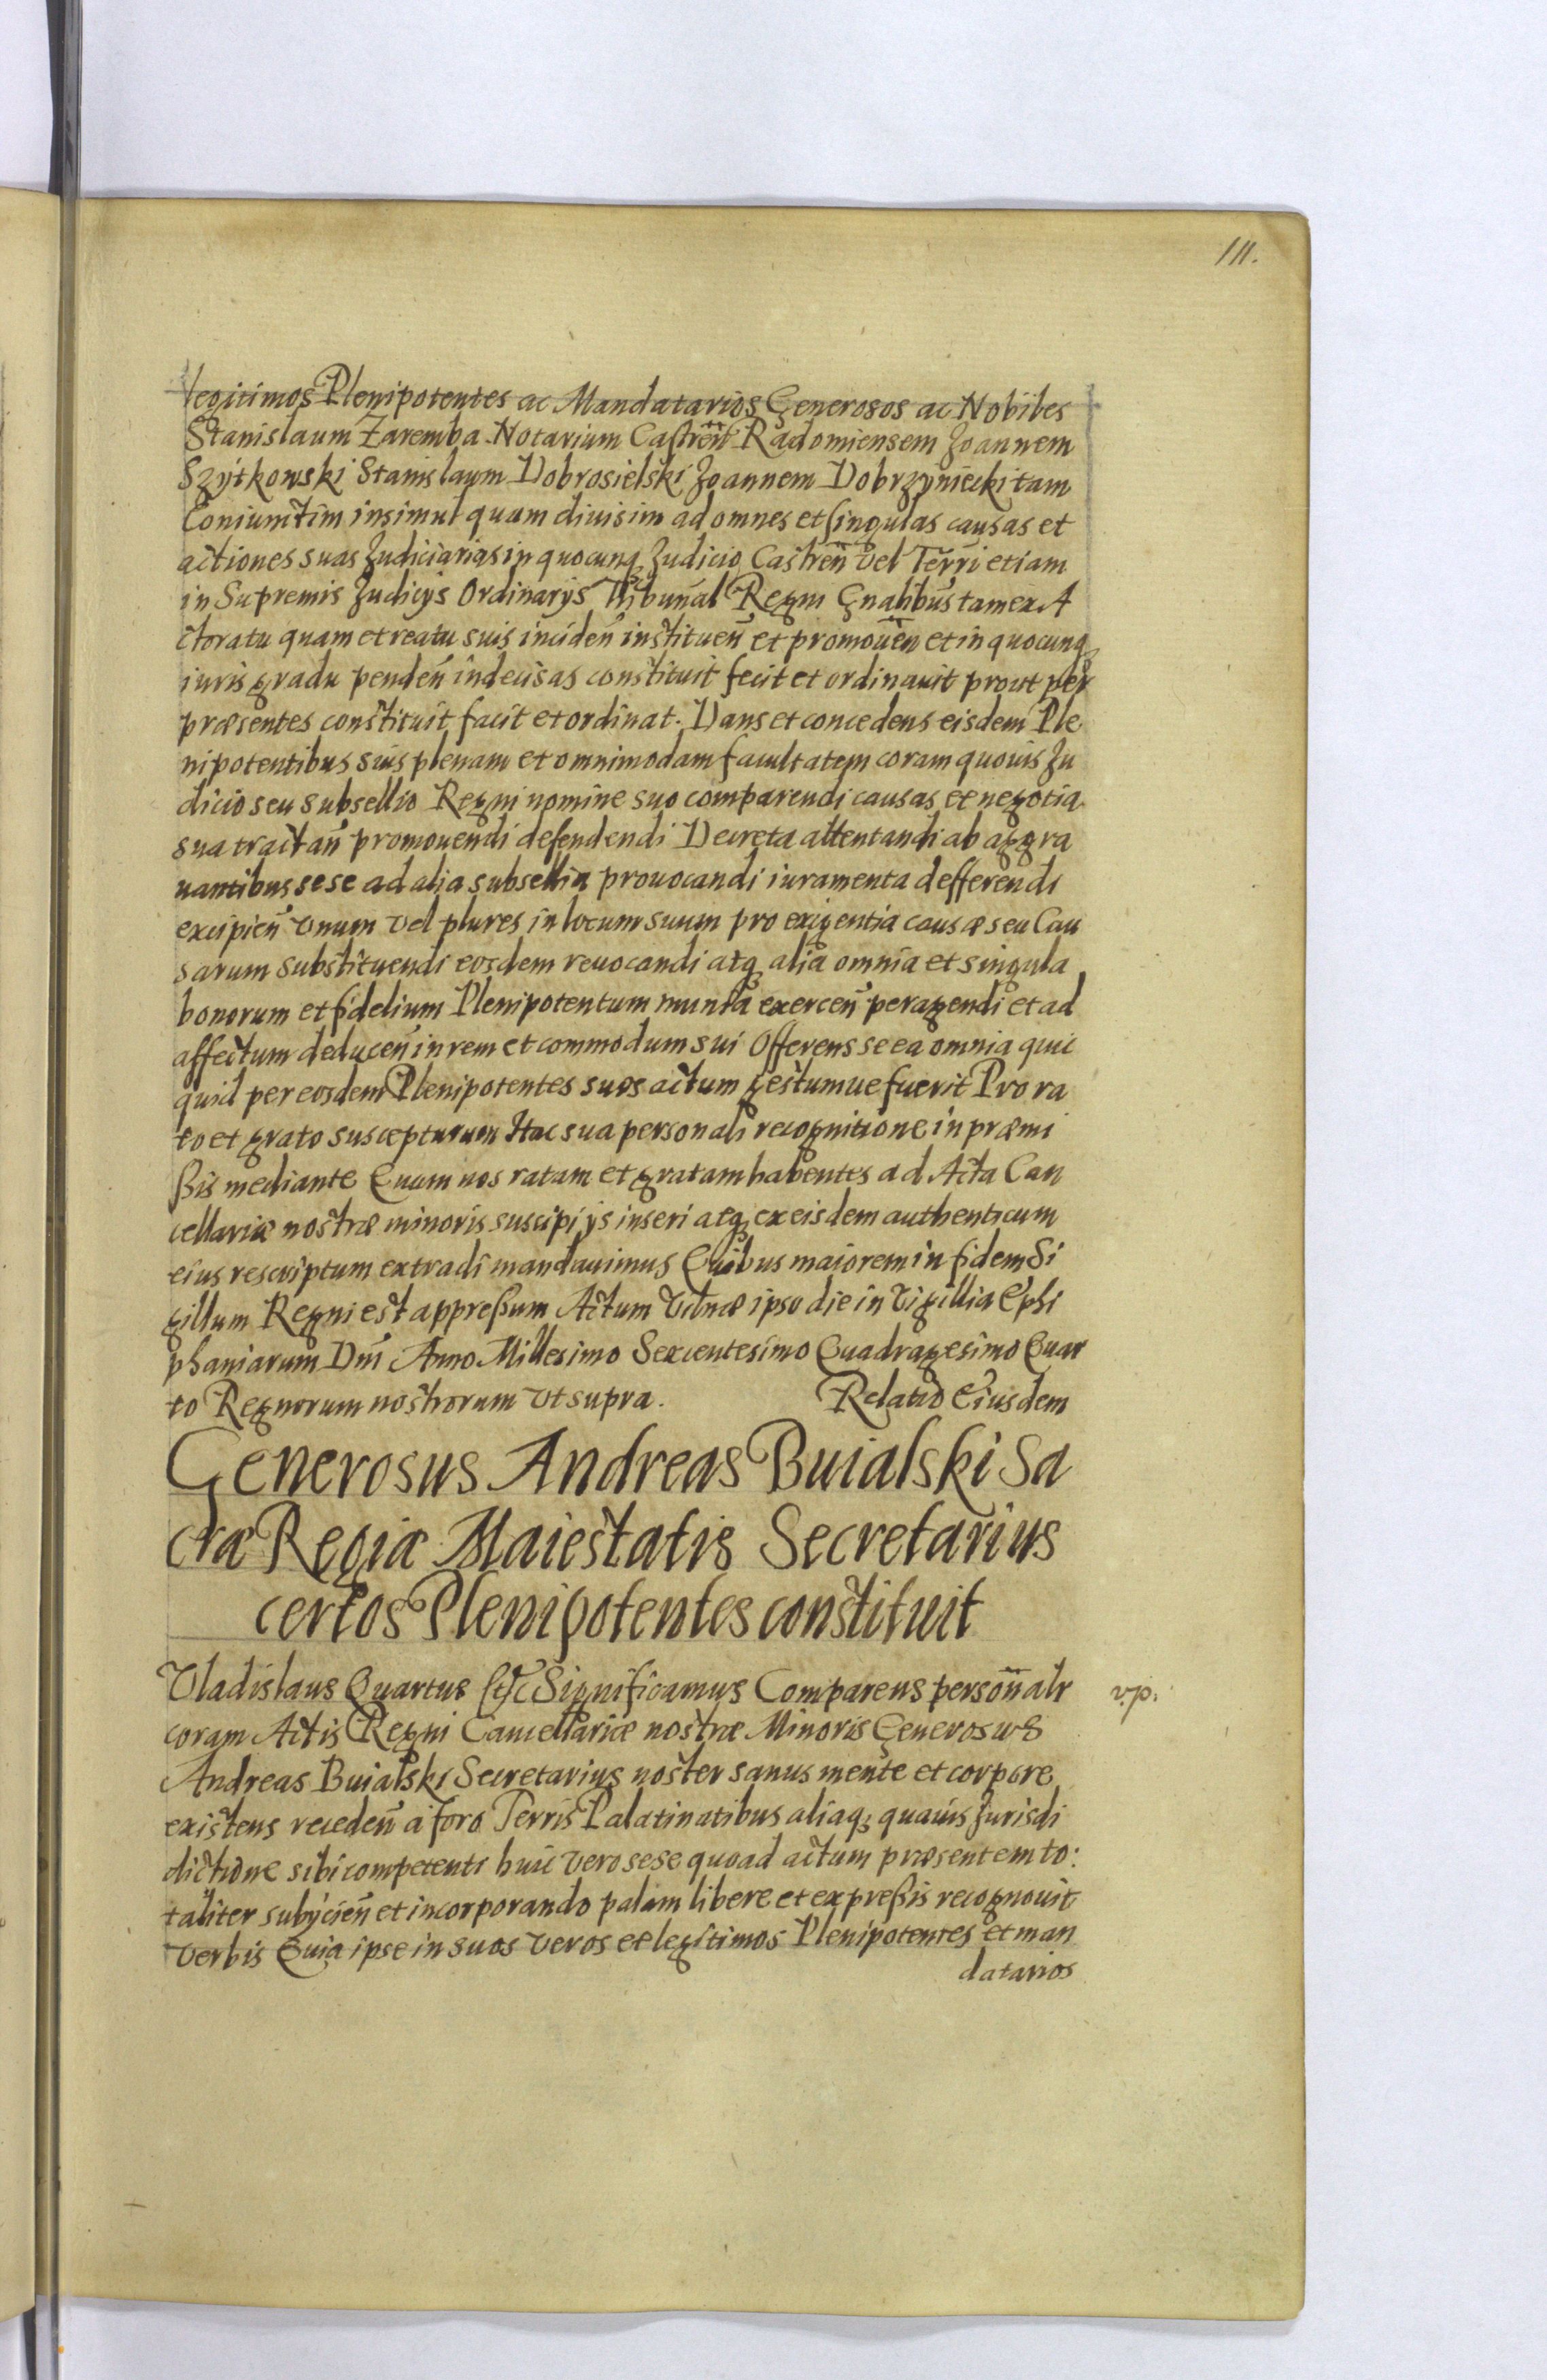 111.
legitimos Plenipotentes ac Mandatarios Generosos ac Nobiles
Stanislaum Zaremba Notarium Castreñ Radomiensem Joannem
Szytkowski Stanislaum Dobrosielski Joannem Dobrzyniecki tam
Coniunctim insimul quam diuisim ad omnes et singulas causas et
actiones suas Judiciarias in quocunq Judicio Castreñ vel Terri etiam
in Supremis Judicijs Ordinarijs Tribunal Regni Gnalibus tam ex A
ctoratu quam et reatu suis incideñ institueñ et promoueñ et in quocunq
iuris gradu pendeñ indecisas constituit fecit et ordinauit prout per
præsentes constituit facit et ordinat. Dans et concedens eisdem Ple
nipotentibus suis plenam et omnimodam facultatem coram quouis Ju
dicio seu subsellio Regni nomine suo comparendi causas et negotia
sua tractañ promouendi defendendi Decreta attentandi ab aggra
uantibus sese ad alia subsellia prouocandi iuramenta defferendi
excipieñ vnum vel plures in locum suum pro exigentia causæ seu Cau
sarum substituendi eosdem reuocandi atq alia omnia et singula
bonorum et fidelium Plenipotentum munia exerceñ peragendi et ad
affectum deduceñ in rem et commodum sui Offerens se ea omnia quic
quid per eosdem Plenipotentes suos actum gestumue fuerit Pro ra
to et grato suscepturum Hac sua personali recognitione in præmi
ßis mediante Quam nos ratam et gratam habentes ad Acta Can
cellariæ nostræ minoris suscipi ijs inseri atq ex eisdem authenticum
eius rescriptum extradi mandauimus Quibus maiorem in fidem Si
gillum Regni est appreßum Actum Vilnæ ipso die in Vigillia Ephi
phaniarum Dni Anno Millesimo Sexcentesimo Quadragesimo Quar
to Regnorum nostrorum vt supra. Relatio Eiusdem
Generosus Andreas Buialski Sa
cræ Regiæ Maiestatis Secretarius
certos Plenipotentes constituit
Vladislaus Quartus &c Significamus Comparens persoñalr v.p.
coram Actis Regni Cancellariæ nostræ Minoris Generosus
Andreas Buialski Secretarius noster sanus mente et corpore
existens recedeñ a foro Terris Palatinatibus aliaq; quauis Jurisdi
dictione sibi competenti huic vero sese quoad actum præsentem to:
taliter subijcieñ et incorporando palam libere et expreßis recognouit
verbis Quia ipse in suos veros et legitimos Plenipotentes et man
datarios